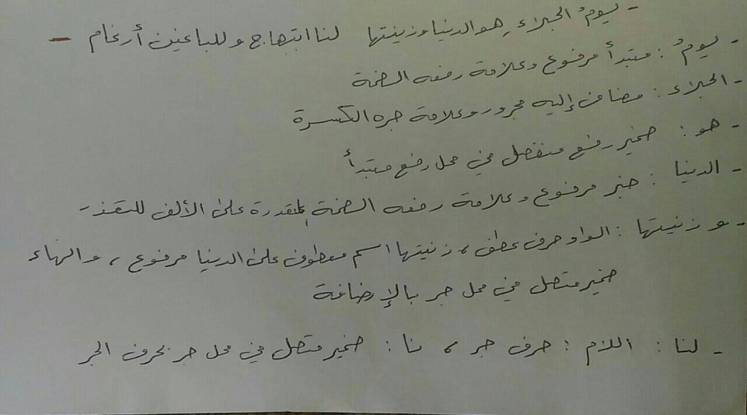 - يومُ الجلاءِ هو الدنيا وزينتها لنا ابتهاج وللباغين أرغام -
- يومُ : مبتدأ مرفوع وعلامة رفعه الضمة
- الجلاء : مضاف إليه مجرور وعلامة جره الكسرة
- هو : ضمير رفع منفصل في محل رفع مبتدأ
- الدنيا : خبر مرفوع وعلامة رفعه الضمة المقدرة على الألف للتعذر
- وزينتها : الواو حرف عطف ، زينتها اسم معطوف على الدنيا مرفوع ، والهاء
ضمير متصل في محل جر بالإضافة
- لنا : اللام : حرف جر ، نا : ضمير متصل في محل جر بحرف الجر